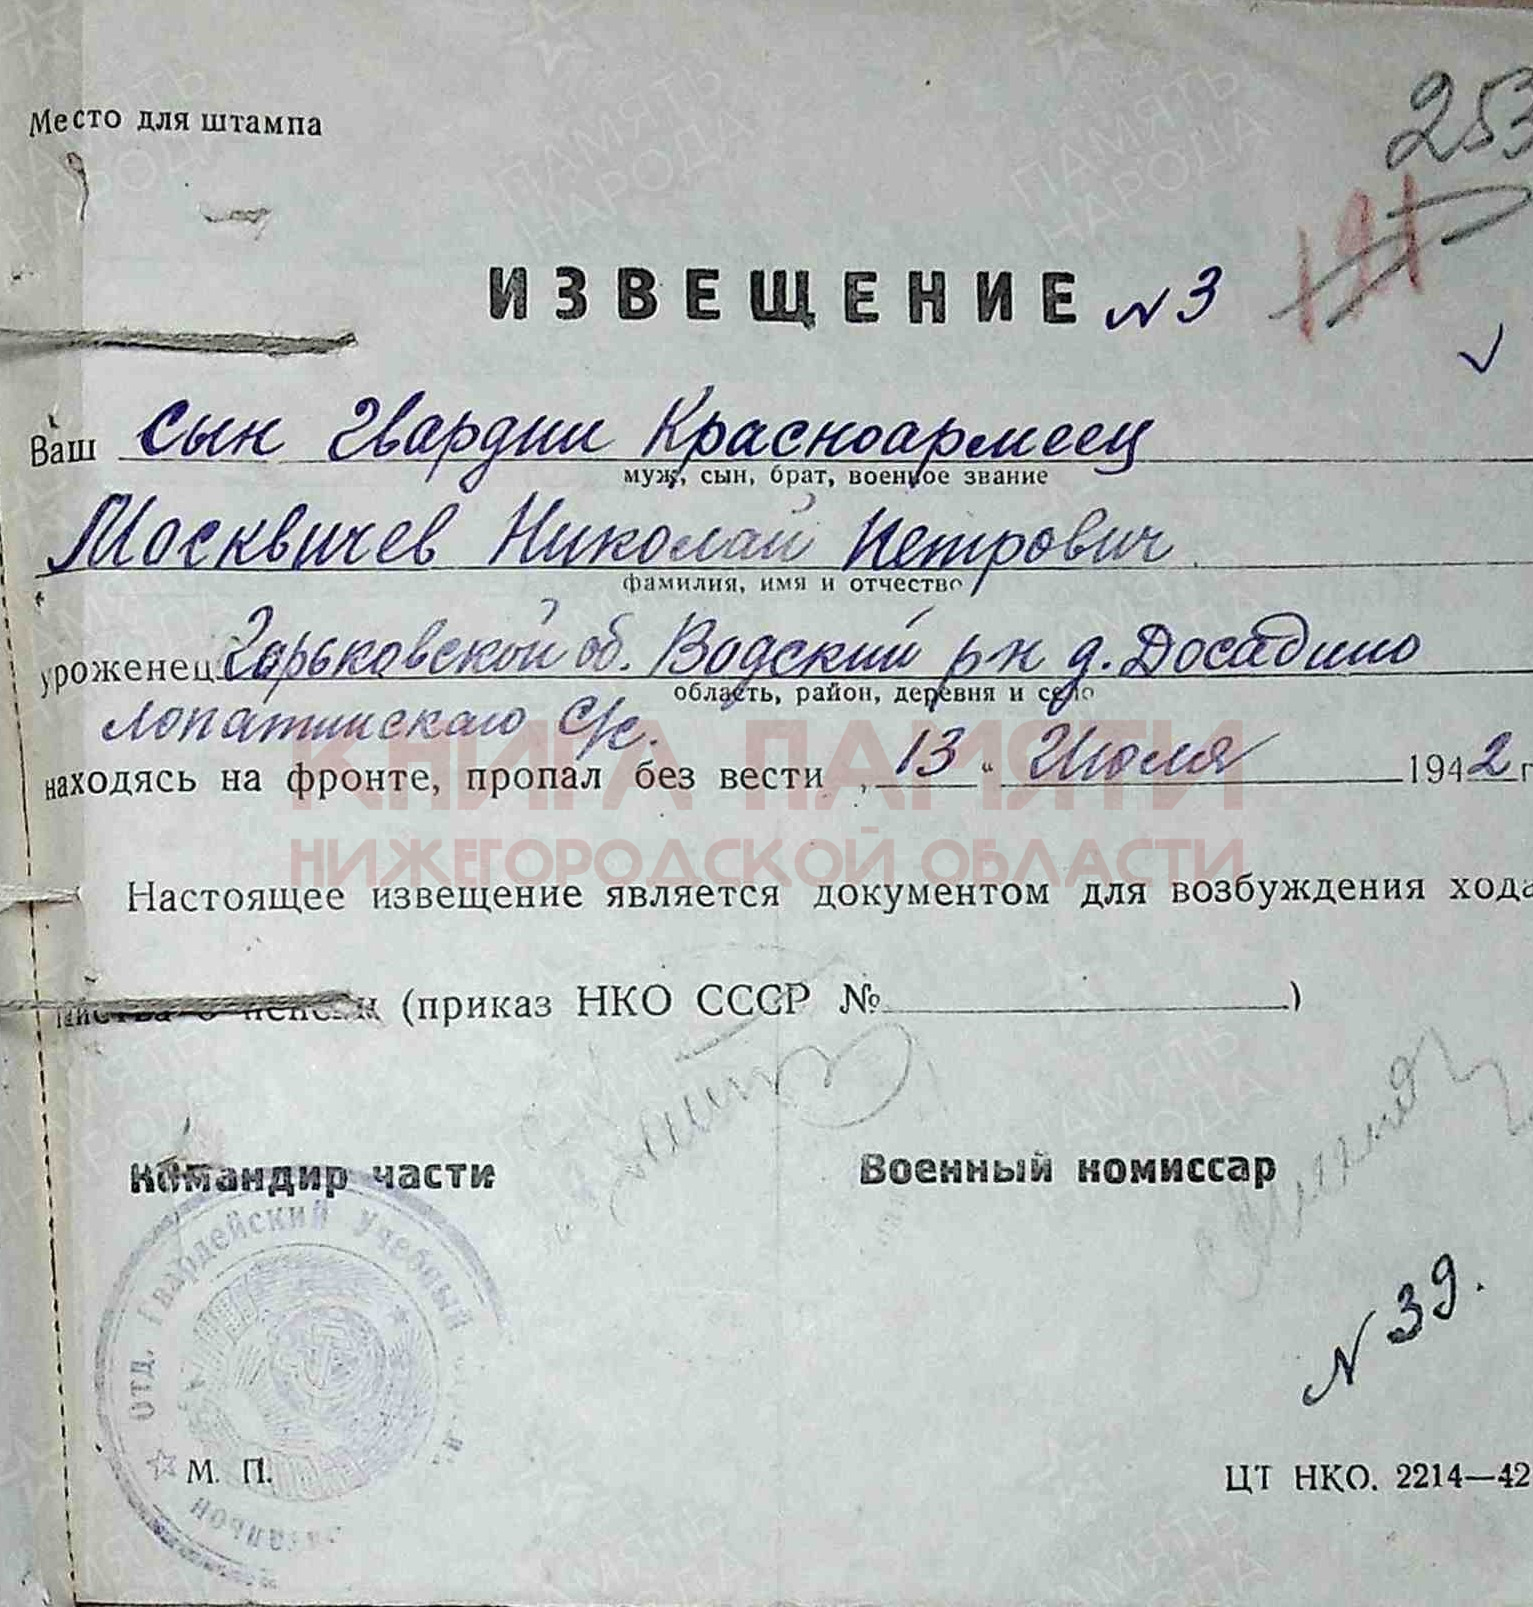 Место для штампа
253
191
ИЗВЕЩЕНИЕ N 3
Ваш сын Гвардии Красноармеец
муж, сын, брат, военное звание
Москвичев Николай Петрович
фамилия, имя и отчество
уроженец Горьковской об. Водский р-н д. Досадино
область, район, деревня и село
Лопатинскаго С/с.
находясь на фронте, пропал без вести „13“ Июля 1942 г
КНИГА ПАМЯТИ
НИЖЕГОРОДСКОЙ ОБЛАСТИ
Настоящее извещение является документом для возбуждения хода
тайства о пенсии (приказ НКО СССР №            )
Командир части Военный комиссар
Отд. Гвардейский Учебный
батальон
N 39.
М. П.
ЦТ НКО. 2214—42
ПАМЯТЬ НАРОДА